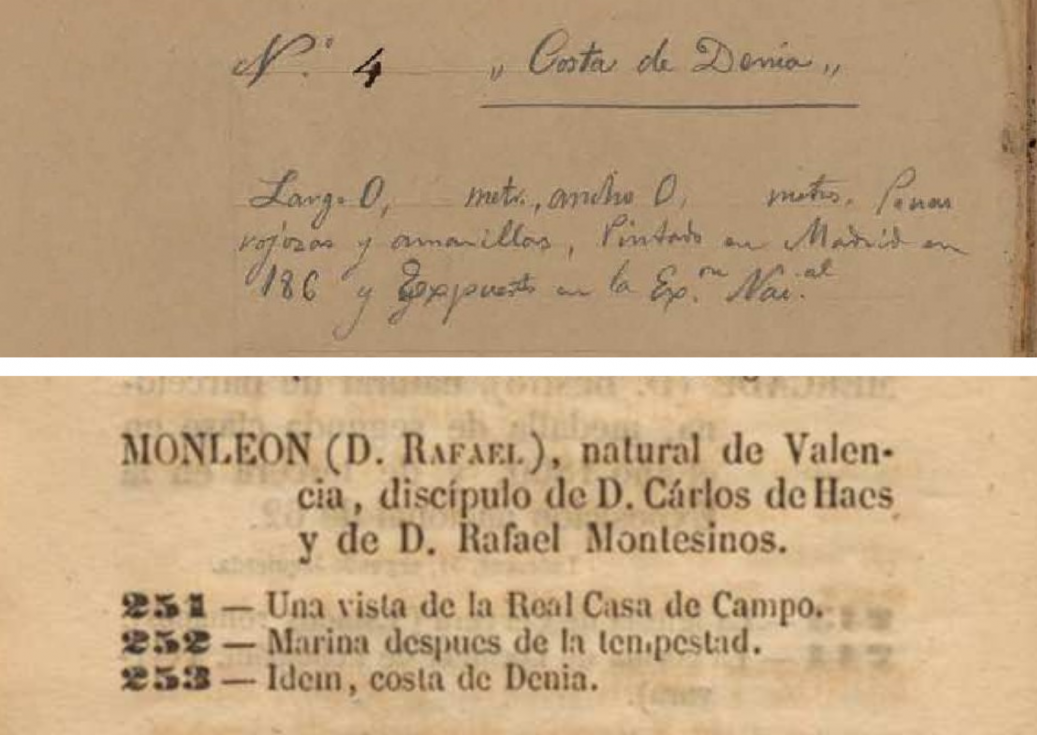 N.º 4 „ Costa de Denia „
Largo 0, metr., ancho 0, metros. Penas
rojozas y amarillas, Pintado en Madrid en
186 y Expuesto en la Ex.on Nai.al
MONLEON (D. RAFAEL), natural de Valen-
cia, discípulo de D. Cárlos de Haes
y de D. Rafael Montesinos.
251 — Una vista de la Real Casa de Campo.
252 — Marina despues de la tempestad.
253 — Idem, costa de Denia.